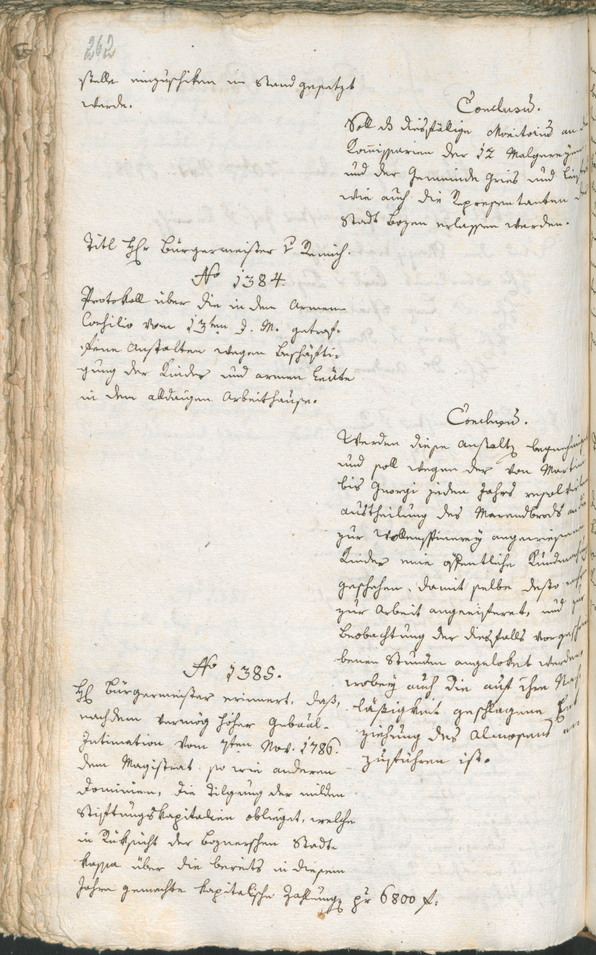 262
stelle einzuschiken im Stand gesetzt
werde.
Conclusum.
Soll ds diesfällige Monitorium an
Kommissarien der 12 Malgreyen
und der Gemeinde Gries und
wie auch die Representanten
Stadt Bozen erlassen werden.
Titl Hr Bürgermeister
No 1384.
Protokoll über die in dem Armen
Consilio vom 13ten d. M. getrof-
fene Anstalten wegen Beschäfti-
gung der Kinder und armen Leute
in dem alldaigen Arbeitshause.
Conclusum.
Werden diese Anstalten begnehmiget
und soll wegen der von Martini
bis Georgi jeden Jahrs
austheilung des Marendbrods
zur Wollenspinnerey angewiesenen
Kinder eine öffentliche Kundmach
geschehen, damit selbe desto
zur Arbeit angeeiferet, und
Beobachtung der diesfalls vorgeschrie
benen Stunden angeloket werden,
wobey auch die auf ihre Nach
läßigkeit geschlagene Ent
ziehung des Almosens
zuführen ist.
No 1385.
Hr Bürgermeister erinnert, daß,
nachdem vermög hoher Gubernial
Intimation vom 7ten Nov. 1786.
dem Magistrat so wie anderen
Dominien, die Tilgung der milden
Stiftungskapitalien obliegt, welche
in Rüksicht der Boznerschen Stadt-
kassa über die bereits in diesem
Jahre gemachte kapitalische Zahlung pr 6800 f.